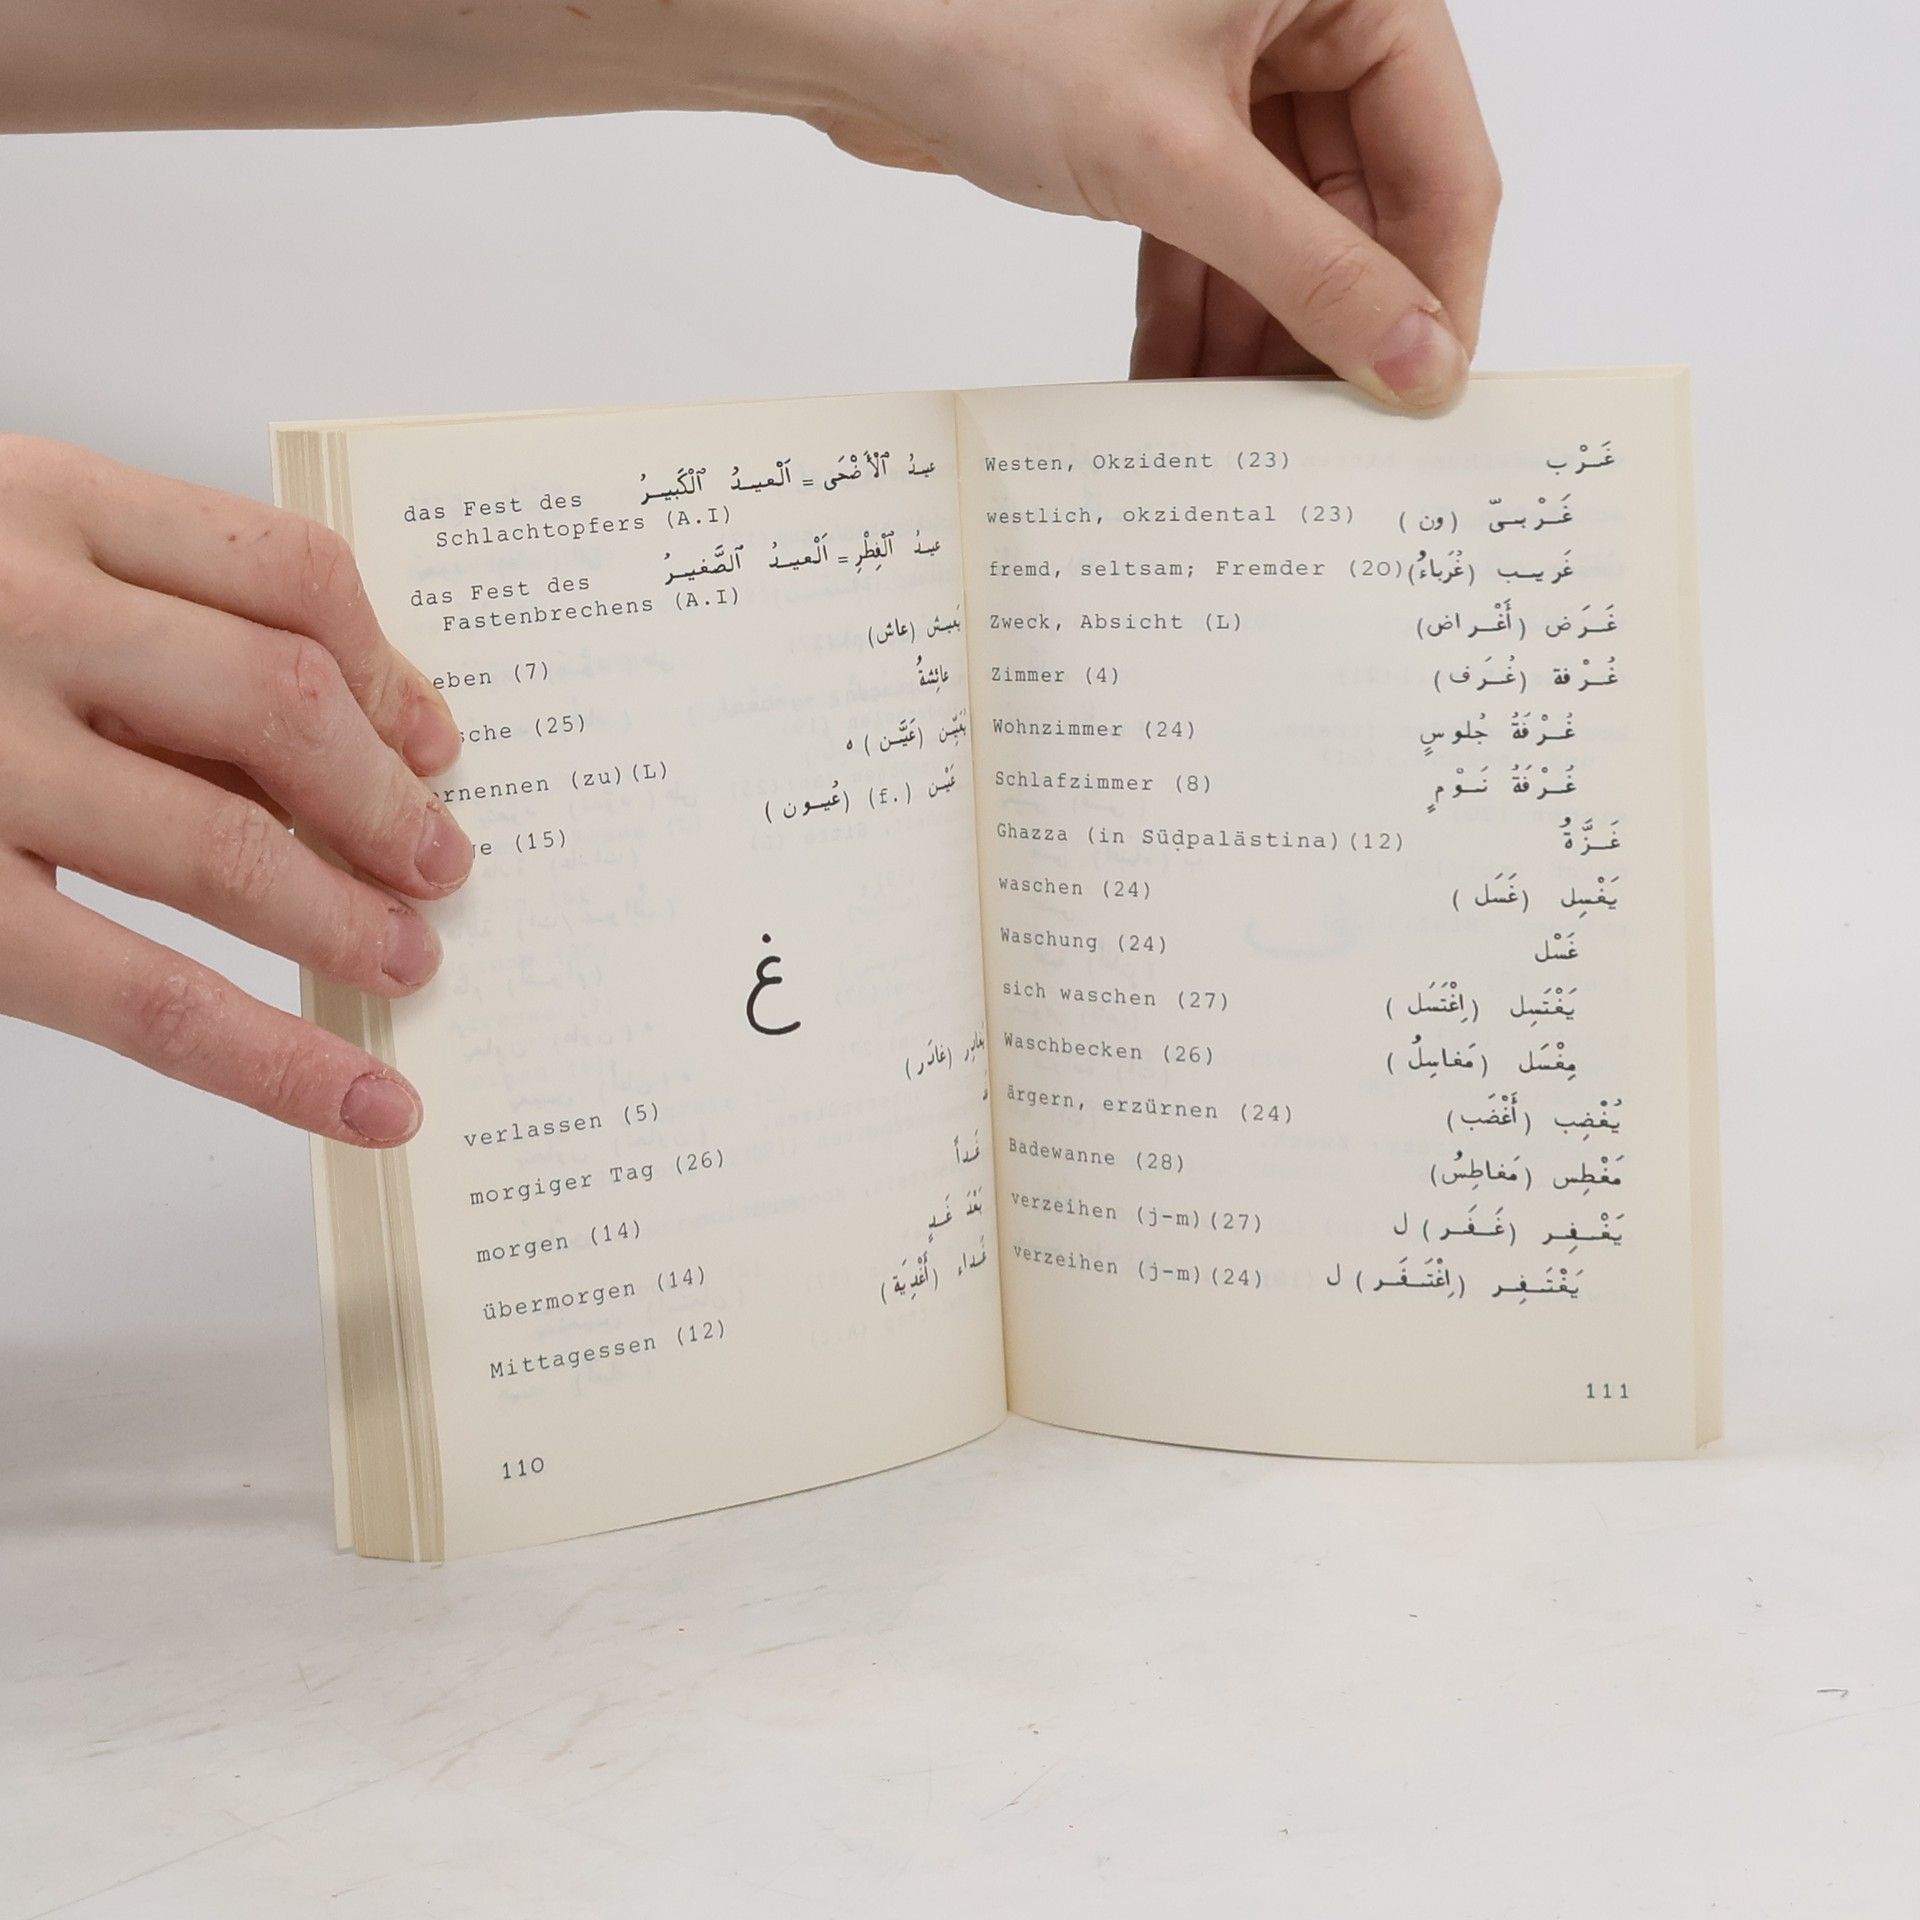 das Fest des عيدُ ٱلْأَضْحَى = اَلْعيدُ ٱلْكَبيرُ
Schlachtopfers (A.I)
das Fest des عيدُ ٱلْفِطْرِ = اَلْعيدُ ٱلصَّغيرُ
Fastenbrechens (A.I)
eben (7) يَعيش (عاش)
sche (25) عائِشةُ
rnennen (zu)(L) يُعَيِّن (عَيَّن) ه
ge (15) عَيْن (f.) (عُيون)
غ
verlassen (5) (غادَر)
morgiger Tag (26)
morgen (14) غَداً
übermorgen (14) بَعْدَ غَدٍ
Mittagessen (12) غَداء (أَغْدِيَة)
110
Westen, Okzident (23) غَرْب
westlich, okzidental (23) غَرْبىّ (ون)
fremd, seltsam; Fremder (20) غَريب (غُرَباءُ)
Zweck, Absicht (L) غَرَض (أَغْراض)
Zimmer (4) غُرْفة (غُرَف)
Wohnzimmer (24) غُرْفَةُ جُلوسٍ
Schlafzimmer (8) غُرْفَةُ نَوْمٍ
Ghazza (in Südpalästina)(12) غَزَّةُ
waschen (24) يَغْسِل (غَسَل)
Waschung (24) غَسْل
sich waschen (27) يَغْتَسِل (اِغْتَسَل)
Waschbecken (26) مِغْسَل (مَغاسِلُ)
ärgern, erzürnen (24) يُغْضِب (أَغْضَب)
Badewanne (28) مَغْطِس (مَغاطِسُ)
verzeihen (j-m)(27) يَغْفِر (غَفَر) ل
verzeihen (j-m)(24) يَغْتَفِر (اِغْتَفَر) ل
111